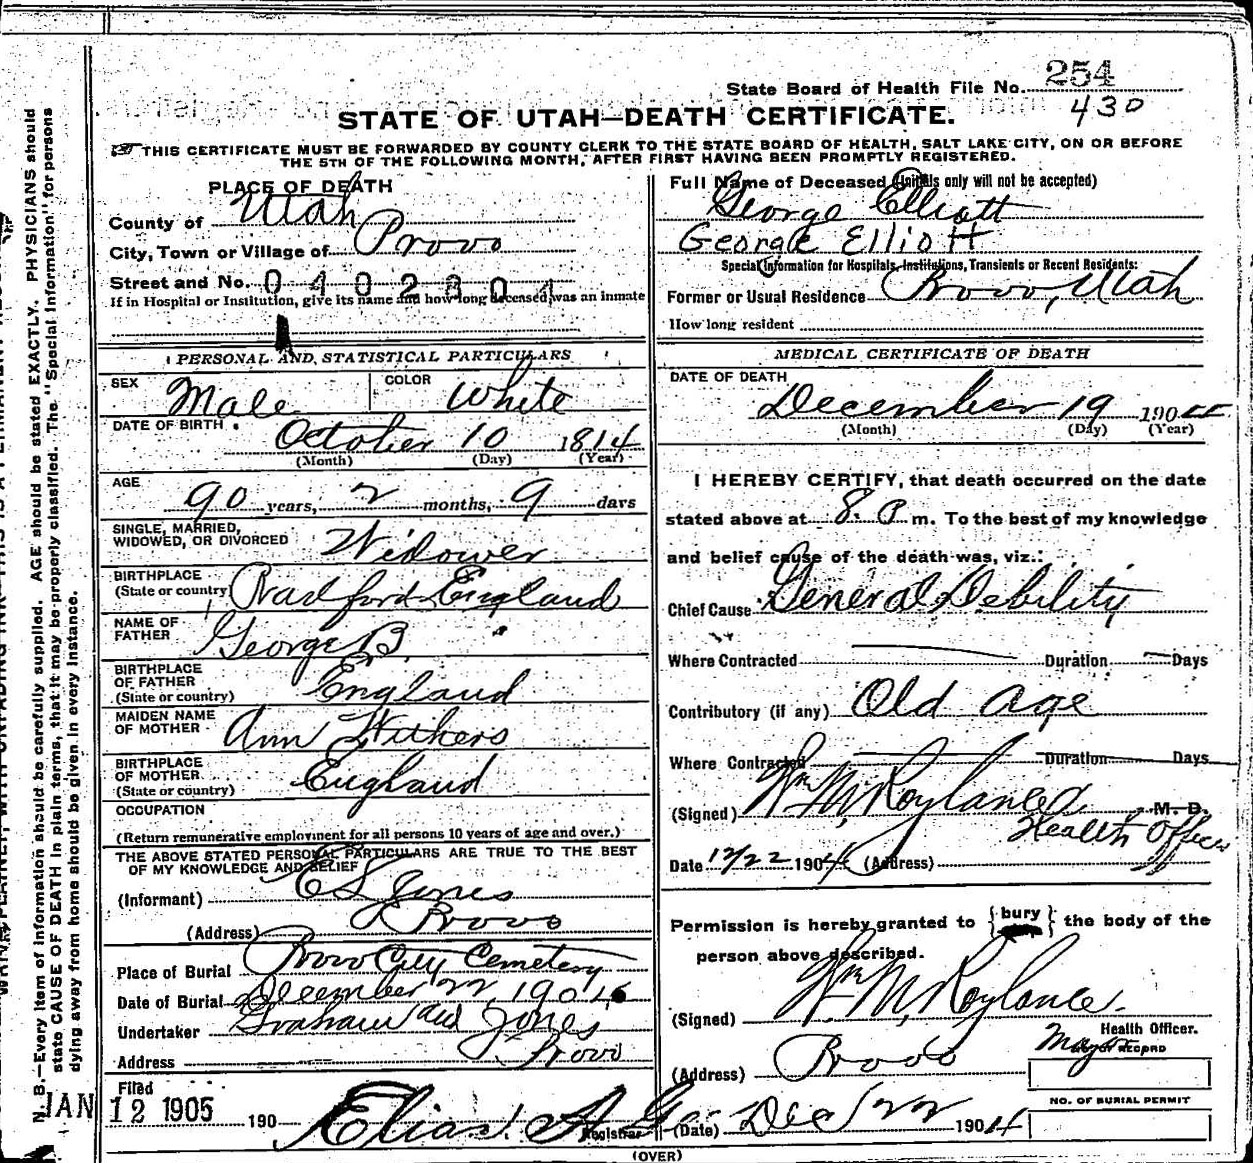 State Board of Health File No. 254
430
STATE OF UTAH—DEATH CERTIFICATE.
THIS CERTIFICATE MUST BE FORWARDED BY COUNTY CLERK TO THE STATE BOARD OF HEALTH, SALT LAKE CITY, ON OR BEFORE
THE 5TH OF THE FOLLOWING MONTH, AFTER FIRST HAVING BEEN PROMPTLY REGISTERED.
PLACE OF DEATH
County of Utah
City, Town or Village of Provo
Street and No. 0402304
If in Hospital or Institution, give its name and how long deceased was an inmate
Full Name of Deceased (Initials only will not be accepted)
George Elliott
George Elliott
Special Information for Hospitals, Institutions, Transients or Recent Residents:
Former or Usual Residence Provo, Utah
How long resident
PERSONAL AND STATISTICAL PARTICULARS
SEX Male COLOR White
DATE OF BIRTH October 10 1814
(Month) (Day) (Year)
AGE 90 years, 2 months, 9 days
SINGLE, MARRIED,
WIDOWED, OR DIVORCED Widower
BIRTHPLACE
(State or country) Bradford England
NAME OF
FATHER George B.
BIRTHPLACE
OF FATHER
(State or country) England
MAIDEN NAME
OF MOTHER Ann Withers
BIRTHPLACE
OF MOTHER
(State or country) England
OCCUPATION
(Return remunerative employment for all persons 10 years of age and over.)
THE ABOVE STATED PERSONAL PARTICULARS ARE TRUE TO THE BEST
OF MY KNOWLEDGE AND BELIEF
(Informant) Jones
(Address) Provo
Place of Burial Provo City Cemetery
Date of Burial December 22, 190
Undertaker Graham and Jones
Address Provo
Filed
JAN 12 1905 190 Elias A Gee
Registrar
MEDICAL CERTIFICATE OF DEATH
DATE OF DEATH
December 19 1904
(Month) (Day) (Year)
I HEREBY CERTIFY, that death occurred on the date
stated above at 8. P m. To the best of my knowledge
and belief cause of the death was, viz.:
Chief Cause General Debility
Where Contracted Duration Days
Contributory (if any) Old age
Where Contracted Duration Days
(Signed) Wm M, Roylance M. D.
Health Officer
Date 12/22 1904 (Address)
Permission is hereby granted to { bury } the body of the
person above described.
(Signed) Wm M, Roylance.
Health Officer.
Mayor
(Address) Provo
NO. OF BURIAL PERMIT
(Date) Dec 22 1904
(OVER)
N. B.—Every item of information should be carefully supplied. AGE should be stated EXACTLY. PHYSICIANS should
state CAUSE OF DEATH in plain terms, that it may be properly classified. The "Special Information" for persons
dying away from home should be given in every instance.